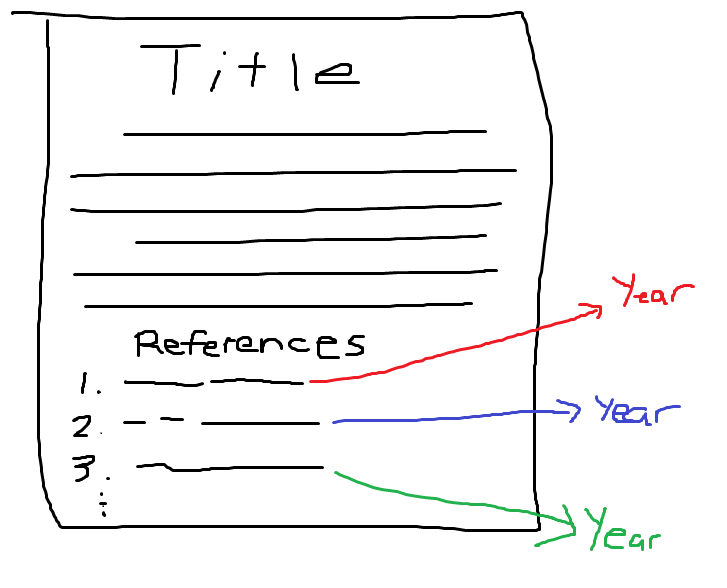 Title
References
1.
Year
2.
Year
3.
Year